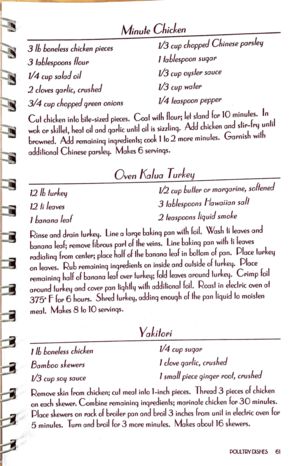 Minute Chicken
3 lb boneless chicken pieces
3 tablespoons flour
1/4 cup salad oil
2 cloves garlic, crushed
3/4 cup chopped green onions
1/3 cup chopped Chinese parsley
1 tablespoon sugar
1/3 cup oyster sauce
1/3 cup water
1/4 teaspoon pepper
Cut chicken into bite-sized pieces. Coat with flour; let stand for 10 minutes. In
wok or skillet, heat oil and garlic until oil is sizzling. Add chicken and stir-fry until
browned. Add remaining ingredients; cook 1 to 2 more minutes. Garnish with
additional Chinese parsley. Makes 6 servings.
Oven Kalua Turkey
12 lb turkey
12 ti leaves
1 banana leaf
1/2 cup butter or margarine, softened
3 tablespoons Hawaiian salt
2 teaspoons liquid smoke
Rinse and drain turkey. Line a large baking pan with foil. Wash ti leaves and
banana leaf; remove fibrous part of the veins. Line baking pan with ti leaves
radiating from center; place half of the banana leaf in bottom of pan. Place turkey
on leaves. Rub remaining ingredients on inside and outside of turkey. Place
remaining half of banana leaf over turkey; fold leaves around turkey. Crimp foil
around turkey and cover pan tightly with additional foil. Roast in electric oven at
375° F for 6 hours. Shred turkey, adding enough of the pan liquid to moisten
meat. Makes 8 to 10 servings.
Yakitori
1 lb boneless chicken
Bamboo skewers
1/3 cup soy sauce
1/4 cup sugar
1 clove garlic, crushed
1 small piece ginger root, crushed
Remove skin from chicken; cut meat into 1-inch pieces. Thread 3 pieces of chicken
on each skewer. Combine remaining ingredients; marinate chicken for 30 minutes.
Place skewers on rack of broiler pan and broil 3 inches from unit in electric oven for
5 minutes. Turn and broil for 3 more minutes. Makes about 16 skewers.
POULTRY DISHES 61